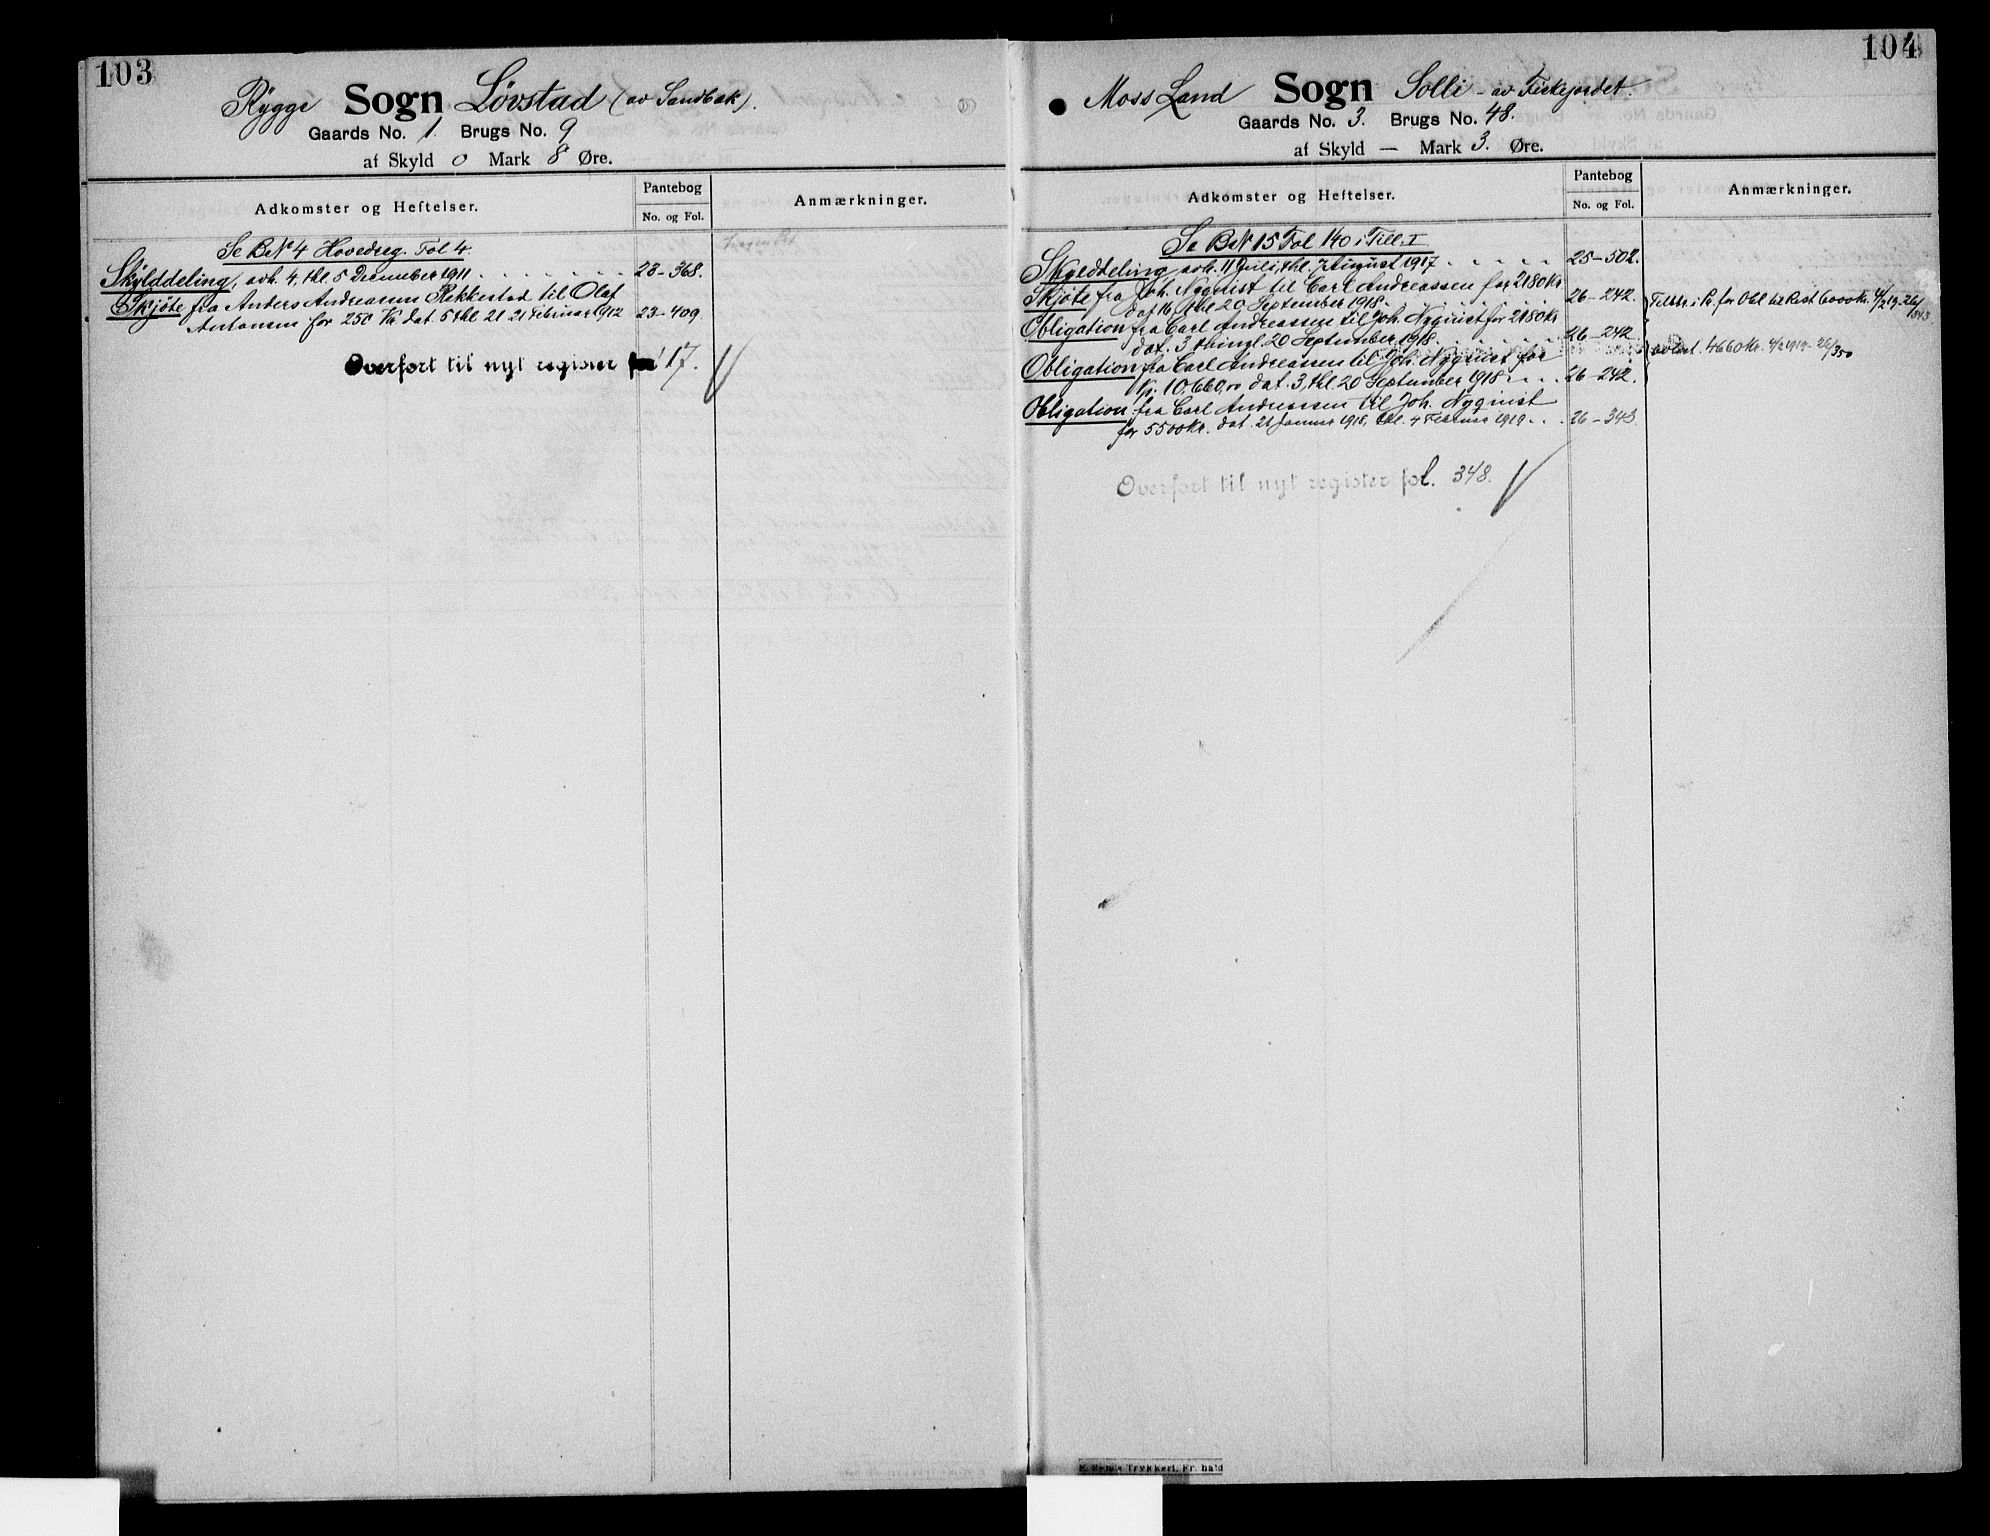 103
Rygge Sogn Lövstad (av Sandbak).
Gaards No. 1. Brugs No. 9
af Skyld 0 Mark 8 Øre.
Adkomster og Heftelser.
Pantebog
No. og Fol.
Anmærkninger.
Se B.N 4 Hovedreg. Fol 4.
Skylddeling, avh. 4, thl. 5 December 1911 . . . . . . . 23-368.
Skjöte fra Anders Andreassen Rekkestad til Olaf
Antonsen for 250 Kr dat. 5 thl 21 Februar 1912 23-409.
Overført til nyt register 17.
104
Moss Land Sogn Solli - av Fiskejordet.
Gaards No. 3. Brugs No. 48.
af Skyld — Mark 3. Øre.
Adkomster og Heftelser.
Pantebog
No. og Fol.
Anmærkninger.
Se B.N 15 Fol 140 i Till. I
Skylddeling avh. 11 Juli, thl. 7 August 1917 . . . . . 25-502.
Skjöte fra Joh. Nyquist til Carl Andreassen for 2180 Kr
dat 16, thl 20 September 1918 . . . . . . . 26-242.
Tilstr. i Pr. for Obl til Rest 6000 Kr. 4/2 19 - 26/343
Obligation fra Carl Andreassen til Joh. Nyquist for 2180 Kr
dat. 3, thingl. 20 September 1918 . . . . . . 26-242.
avlest. 4660 Kr. 4/2 1919 - 26/350
Obligation fra Carl Andreassen til Joh. Nyquist for
Kr. 10.660,00 dat. 3, thl. 20 September 1918 . . . . 26-242.
Obligation fra Carl Andreassen til Joh. Nyquist
for 5500 Kr. dat. 21 Januar 1918, thl. 4 Februar 1919 . . . 26-343.
Overført til nyt register fol. 348.
Trykkeri, Fr. hald